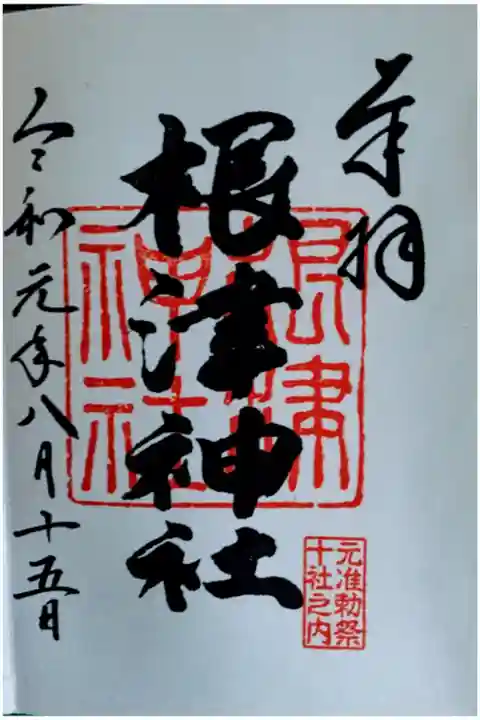 奉拝
根津神社
根津神社
元准勅祭
十社之内
令和元年八月十五日